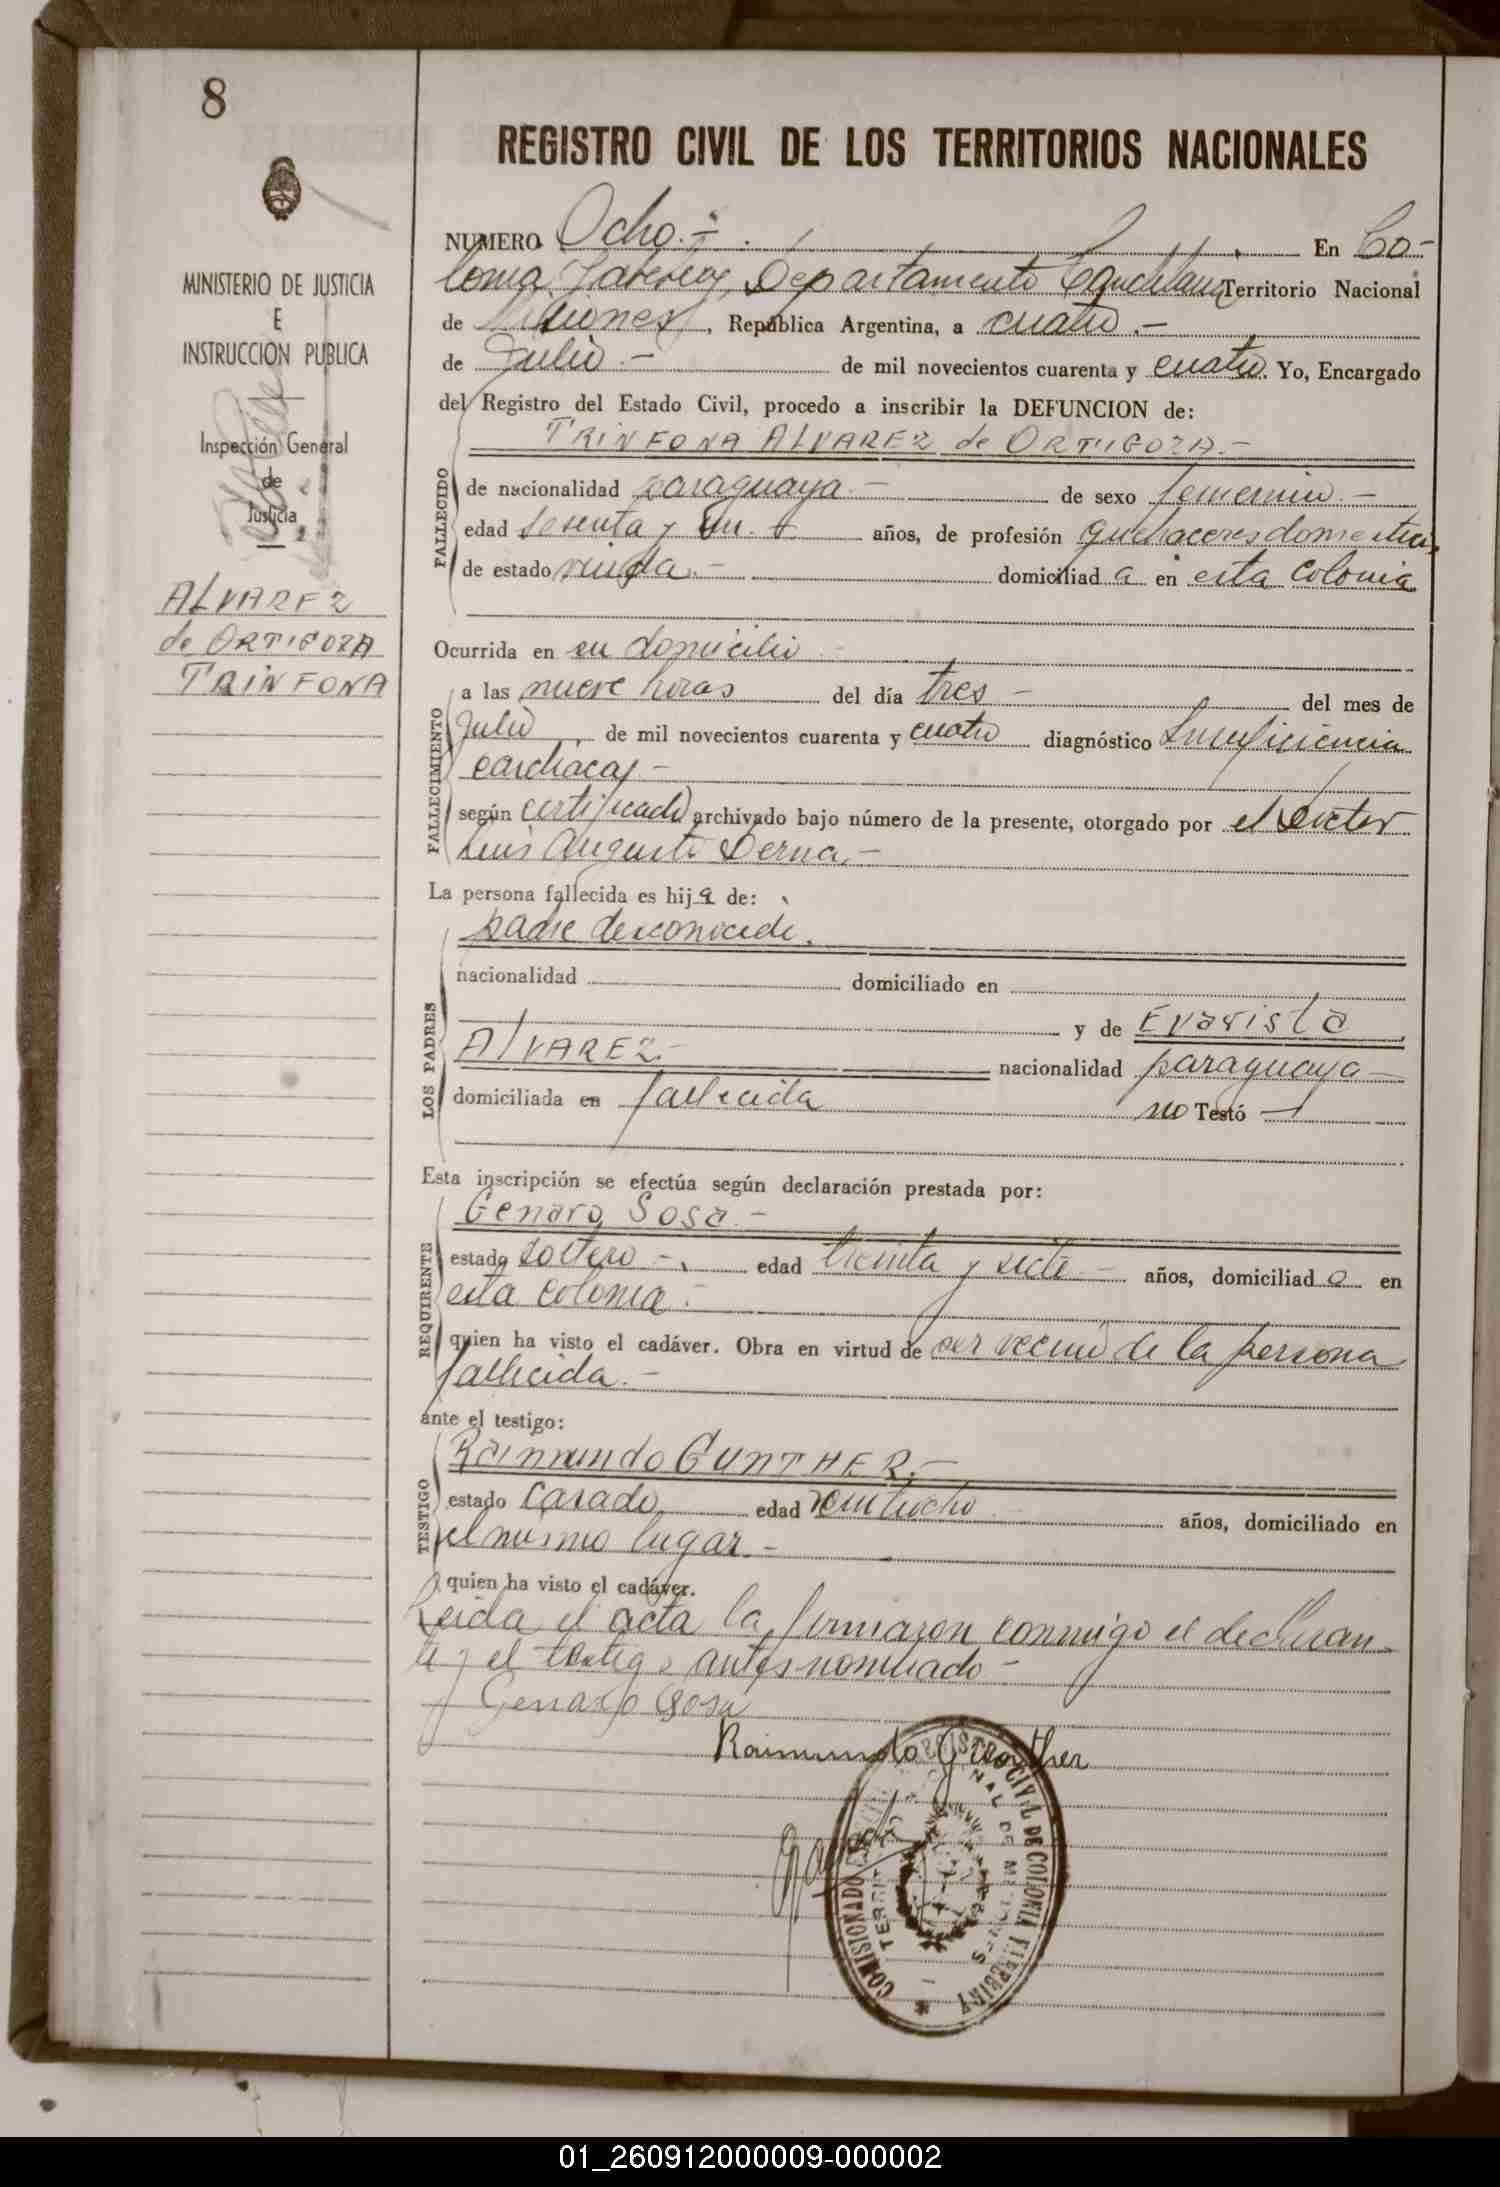 8
REGISTRO CIVIL DE LOS TERRITORIOS NACIONALES
MINISTERIO DE JUSTICIA
E
INSTRUCCION PUBLICA
Inspección General
de
Justicia
ALVAREZ
de ORTIGOZA
TRINFONA
NUMERO Ocho.- En Co-
lonia Departamento Territorio Nacional
de Misiones, República Argentina, a cuatro.-
de Julio.- de mil novecientos cuarenta y cuatro. Yo, Encargado
del Registro del Estado Civil, procedo a inscribir la DEFUNCION de:
TRINFONA ALVAREZ de ORTIGOZA.-
FALLECIDO
de nacionalidad paraguaya.- de sexo femenino.-
edad sesenta y un.- años, de profesión quehaceres domesticos,
de estado viuda.- domiciliad a en esta colonia
Ocurrida en su domicilio
FALLECIMIENTO
a las nueve horas del día tres - del mes de
Julio, de mil novecientos cuarenta y cuatro diagnóstico Insuficiencia
cardiaca,-
según certificado archivado bajo número de la presente, otorgado por el Doctor
Luis Augusto Derna,-
La persona fallecida es hij a de:
LOS PADRES
padre desconocido.
nacionalidad domiciliado en
y de Evarista
ALVAREZ.- nacionalidad paraguaya -
domiciliada en fallecida no Testó -
Esta inscripción se efectúa según declaración prestada por:
REQUIRENTE
Genaro Sosa.-
estado soltero -, edad treinta y siete - años, domiciliad o en
esta colonia.-
quien ha visto el cadáver. Obra en virtud de ser vecino de la persona
fallecida.-
ante el testigo:
TESTIGO
Raimundo GUNTHER.-
estado Casado, edad veintiocho años, domiciliado en
el mismo lugar.-
quien ha visto el cadáver.
Leida el acta la firmaron conmigo el declaran-
te y el testigo antes nombrado -
Genaro Sosa
Raimundo Gunther
COMISIONADO REGISTRO CIVIL DE COLONIA
01_260912000009-000002